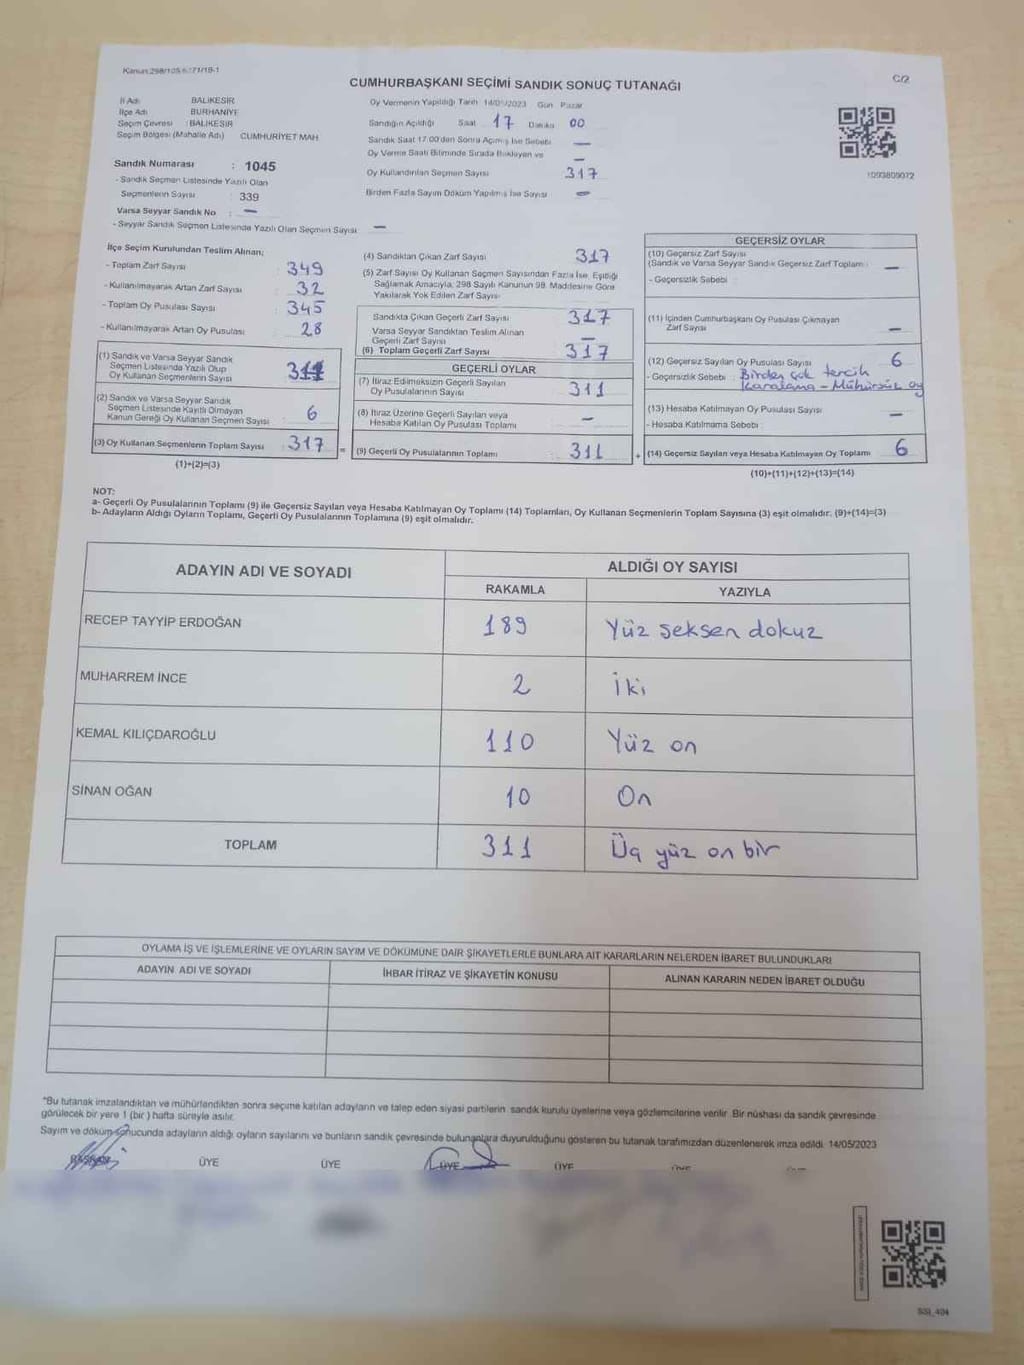 Kanun:298/105
CUMHURBAŞKANI SEÇİMİ SANDIK SONUÇ TUTANAĞI
C/2
İl Adı BALIKESİR
İlçe Adı BURHANİYE
Seçim Çevresi : BALIKESİR
Seçim Bölgesi (Mahalle Adı) CUMHURİYET MAH
Sandık Numarası : 1045
- Sandık Seçmen Listesinde Yazılı Olan
Seçmenlerin Sayısı : 339
Varsa Seyyar Sandık No : —
- Seyyar Sandık Seçmen Listesinde Yazılı Olan Seçmen Sayısı —
Oy Vermenin Yapıldığı Tarih 14/05/2023 Gün Pazar
Sandığın Açıldığı Saat 17 Dakika 00
Sandık Saat 17:00'den Sonra Açılmış İse Sebebi —
Oy Verme Saati Bitiminde Sırada Bekleyen ve —
Oy Kullandırılan Seçmen Sayısı 317
Birden Fazla Sayım Döküm Yapılmış İse Sayısı —
1093809072
İlçe Seçim Kurulundan Teslim Alınan;
- Toplam Zarf Sayısı 349
- Kullanılmayarak Artan Zarf Sayısı 32
- Toplam Oy Pusulası Sayısı 345
- Kullanılmayarak Artan Oy Pusulası 28
(1) Sandık ve Varsa Seyyar Sandık
Seçmen Listesinde Yazılı Olup
Oy Kullanan Seçmenlerin Sayısı
(2) Sandık ve Varsa Seyyar Sandık
Seçmen Listesinde Kayıtlı Olmayan
Kanun Gereği Oy Kullanan Seçmen Sayısı : 6
(3) Oy Kullanan Seçmenlerin Toplam Sayısı : 317
(1)+(2)=(3)
(4) Sandıktan Çıkan Zarf Sayısı 317
(5) Zarf Sayısı Oy Kullanan Seçmen Sayısından Fazla İse, Eşitliği
Sağlamak Amacıyla; 298 Sayılı Kanunun 98. Maddesine Göre
Yakılarak Yok Edilen Zarf Sayısı
Sandıkta Çıkan Geçerli Zarf Sayısı 317
Varsa Seyyar Sandıktan Teslim Alınan
Geçerli Zarf Sayısı —
(6) Toplam Geçerli Zarf Sayısı 317
GEÇERLİ OYLAR
(7) İtiraz Edilmeksizin Geçerli Sayılan
Oy Pusulalarının Sayısı 311
(8) İtiraz Üzerine Geçerli Sayılan veya
Hesaba Katılan Oy Pusulası Toplamı —
=
(9) Geçerli Oy Pusulalarının Toplamı : 311
+
GEÇERSİZ OYLAR
(10) Geçersiz Zarf Sayısı
(Sandık ve Varsa Seyyar Sandık Geçersiz Zarf Toplamı) —
- Geçersizlik Sebebi :
(11) İçinden Cumhurbaşkanı Oy Pusulası Çıkmayan
Zarf Sayısı —
(12) Geçersiz Sayılan Oy Pusulası Sayısı 6
- Geçersizlik Sebebi : Birden çok tercih
Karalama - Mühürsüz oy
(13) Hesaba Katılmayan Oy Pusulası Sayısı —
- Hesaba Katılmama Sebebi :
(14) Geçersiz Sayılan veya Hesaba Katılmayan Oy Toplamı 6
(10)+(11)+(12)+(13)=(14)
NOT:
a- Geçerli Oy Pusulalarının Toplamı (9) ile Geçersiz Sayılan veya Hesaba Katılmayan Oy Toplamı (14) Toplamları, Oy Kullanan Seçmenlerin Toplam Sayısına (3) eşit olmalıdır. (9)+(14)=(3)
b- Adayların Aldığı Oyların Toplamı, Geçerli Oy Pusulalarının Toplamına (9) eşit olmalıdır.
ADAYIN ADI VE SOYADI ALDIĞI OY SAYISI
RAKAMLA YAZIYLA
RECEP TAYYİP ERDOĞAN 189 Yüz seksen dokuz
MUHARREM İNCE 2 İki
KEMAL KILIÇDAROĞLU 110 Yüz on
SİNAN OĞAN 10 On
TOPLAM 311 Üç yüz on bir
OYLAMA İŞ VE İŞLEMLERİNE VE OYLARIN SAYIM VE DÖKÜMÜNE DAİR ŞİKAYETLERLE BUNLARA AİT KARARLARIN NELERDEN İBARET BULUNDUKLARI
ADAYIN ADI VE SOYADI İHBAR İTİRAZ VE ŞİKAYETİN KONUSU ALINAN KARARIN NEDEN İBARET OLDUĞU
*Bu tutanak imzalandıktan ve mühürlendikten sonra seçime katılan adayların ve talep eden siyasi partilerin sandık kurulu üyelerine veya gözlemcilerine verilir. Bir nüshası da sandık çevresinde
görülecek bir yere 1 (bir) hafta süreyle asılır.
Sayım ve döküm sonucunda adayların aldığı oyların sayılarını ve bunların sandık çevresinde bulunanlara duyurulduğunu gösteren bu tutanak tarafımızdan düzenlenerek imza edildi. 14/05/2023
BAŞKAN ÜYE ÜYE ÜYE ÜYE